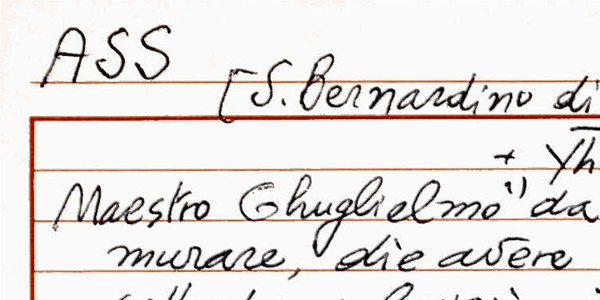 ASS
[S. Bernardino di
+ Yh
Maestro Ghuglielmo¹⁾ da
murare, die avere